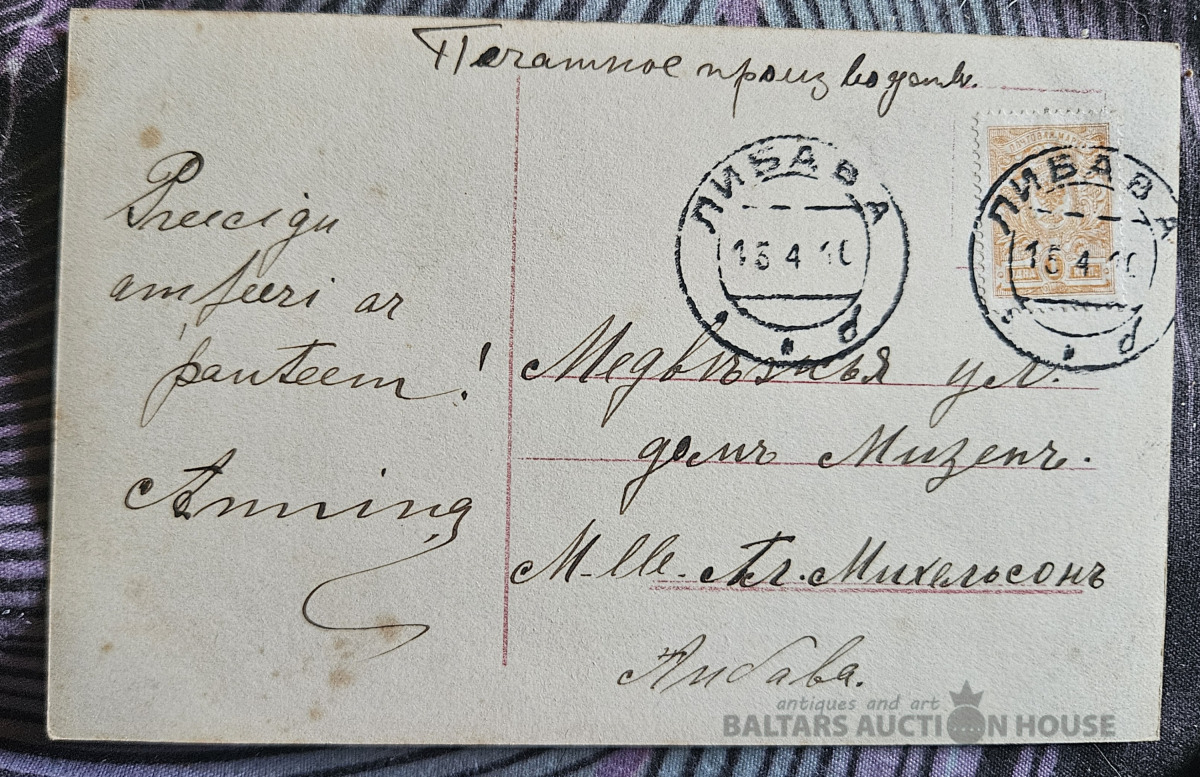 Печатное произведен.
ЛИБАВА
15 4 10
Р
ЛИБАВА
15 4 10
Р
Preecigu
am feeri ar
panteem!
Anning
Медвѣжья ул.
домъ Мизенъ.
M-lle. Ал. Михельсонъ
Либава.
antiques and art
BALTARS AUCTION HOUSE